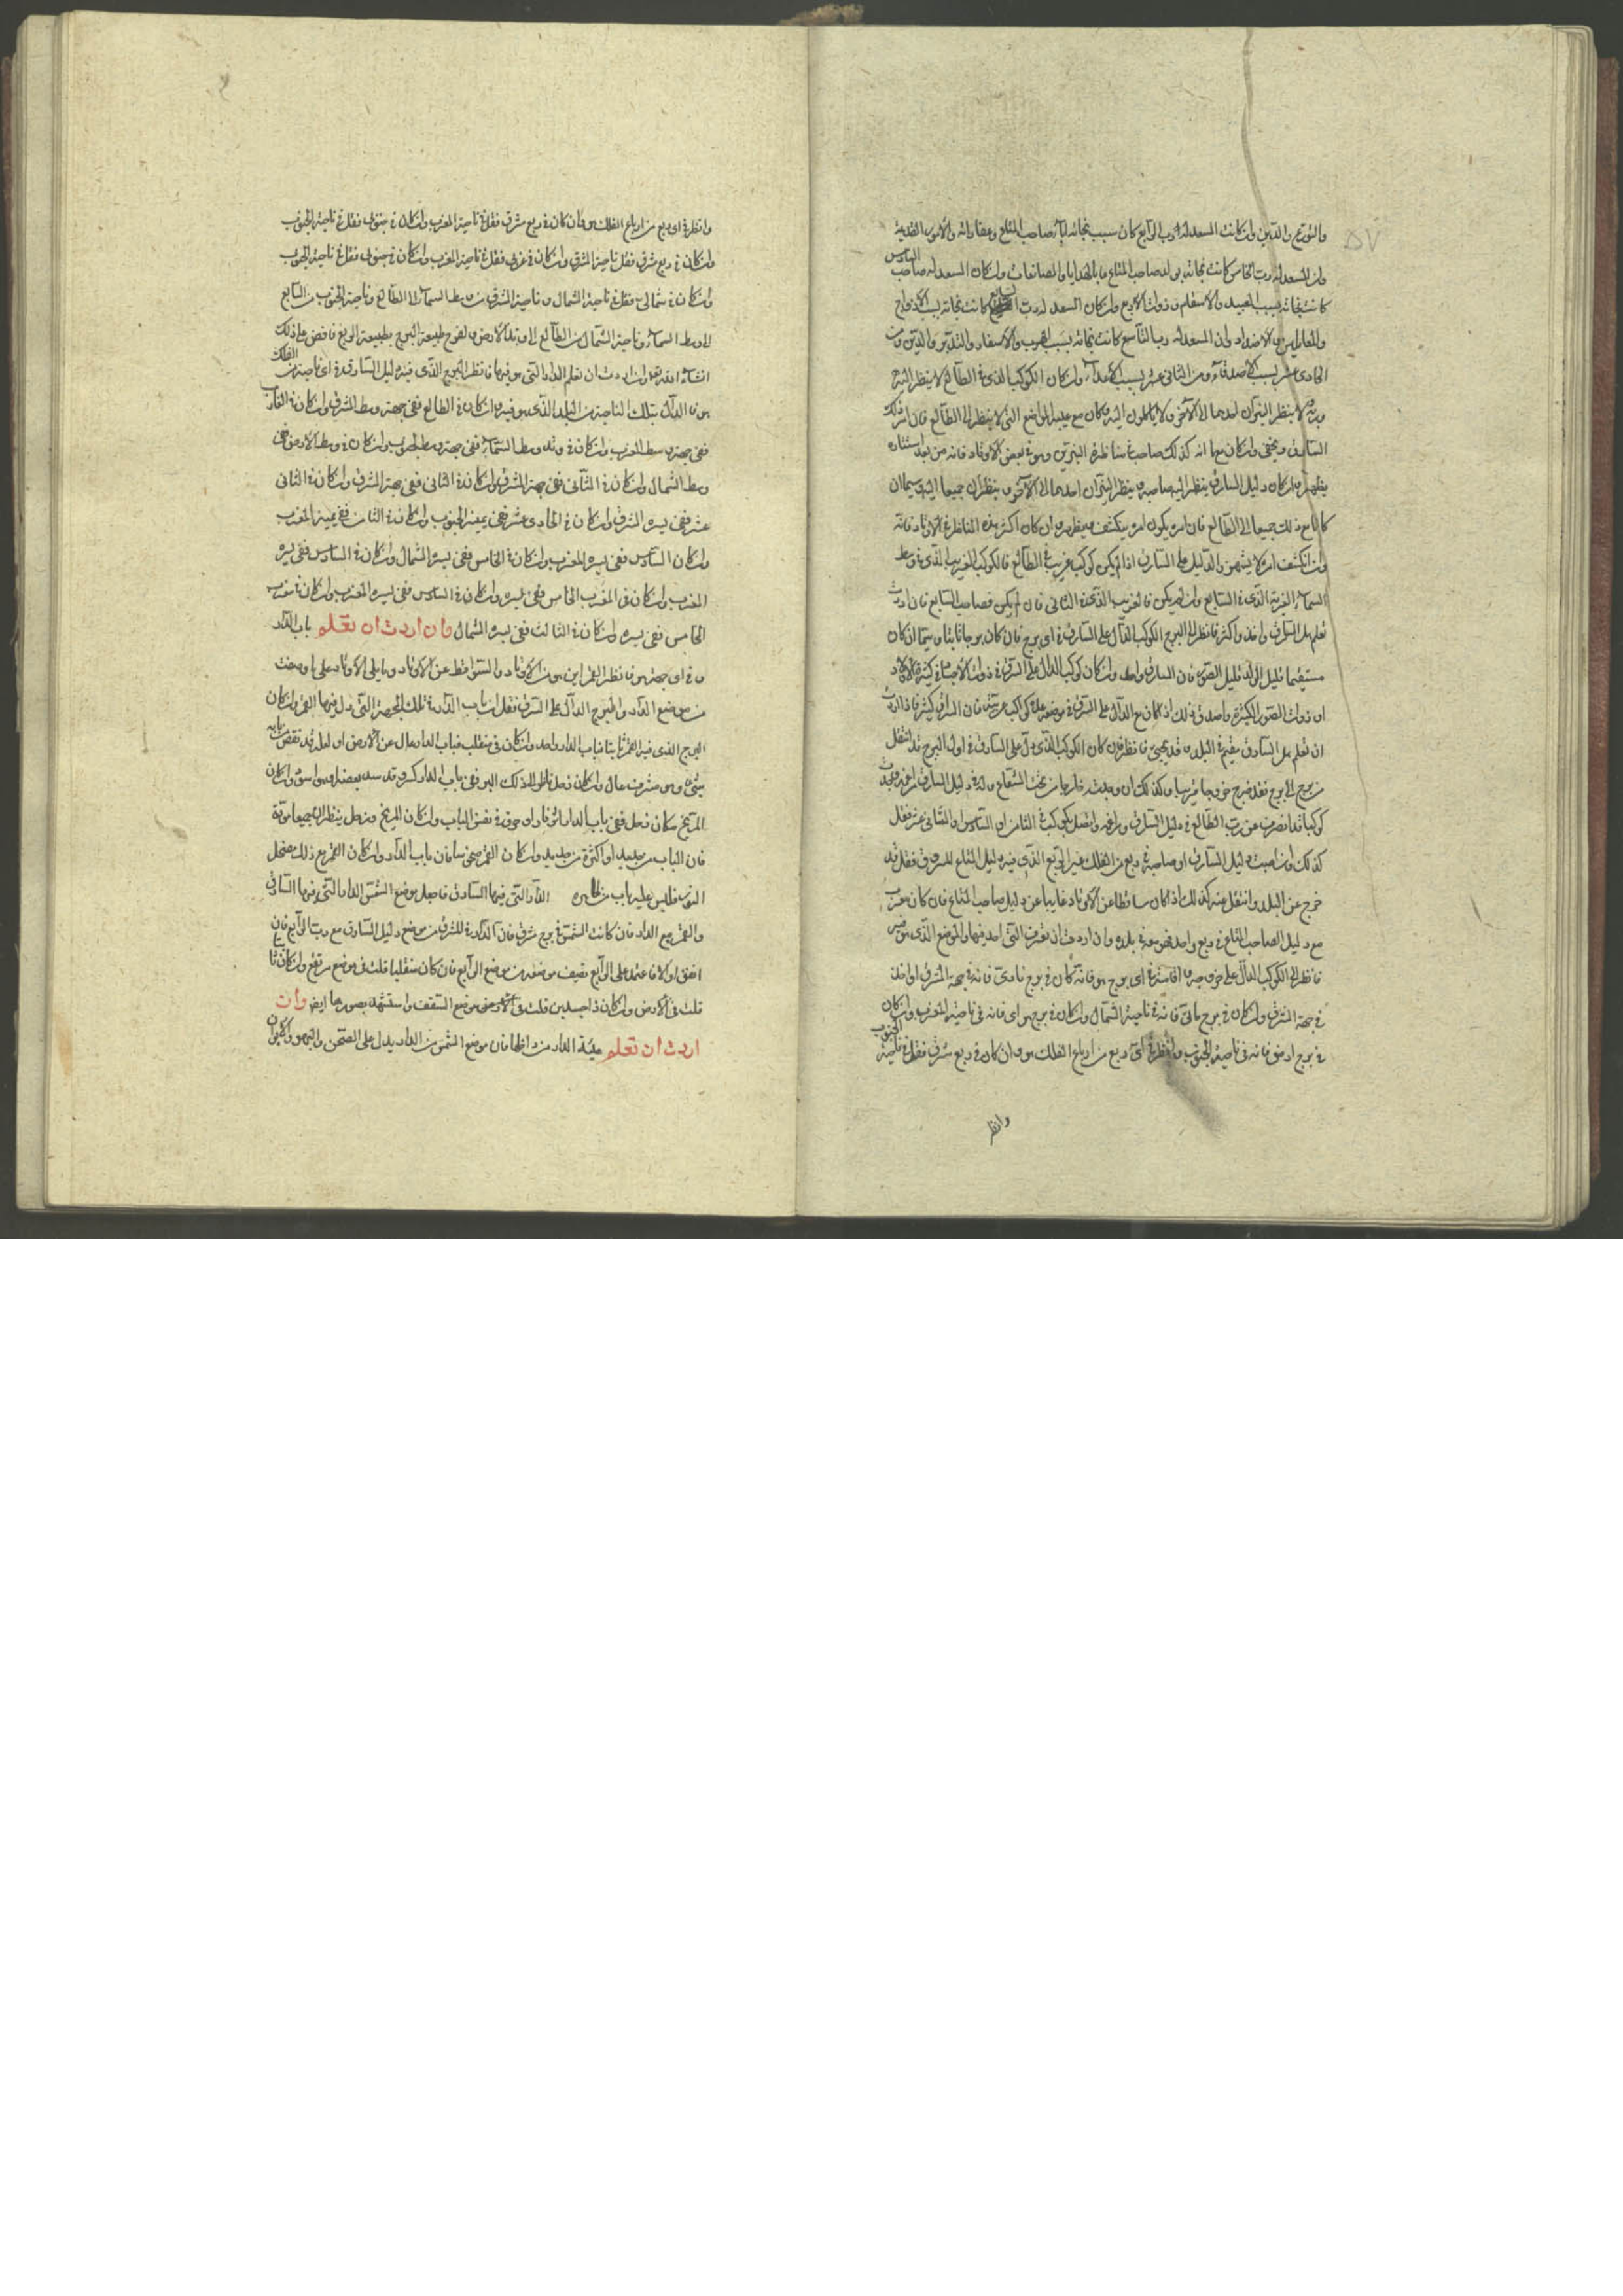 والتورع والدين وان كانت السعد له رب الرابع كان سبب نجاته بآباء صاحب المتاع وعقاراته والامور القديمة
وان السعد له رب الخامس كانت نجاته بولد صاحب المتاع او بالهدايا والمصانعات وان كان السعد له صاحب السادس
كانت نجاته بسبب العبيد والاسقام وذوات الاربع وان كان السعد له رب السابع كانت نجاته بسبب الازواج
والمقابلين والاضداد وان السعد له رب التاسع كانت نجاته بسبب الهرب والاسفار والتدبير والدين ومن
الحادى عشر بسبب الاصدقاء ومن الثانى عشر بسبب الاعداء وان كان الكوكب الذى فى الطالع لا ينظر اليه
وربه ولا ينظر النيران احدهما الى الآخر ولا يكاملون اليه وكان مع المواضع التى لا ينظر الى الطالع فان امر ذلك
السارق ويخفى وان كان مع انه كذلك صاحب مناظرة النيرين وهو فى بعض الاوتاد فانه من بعد استتاره
يظهر وان كان دليل السارق ينظر اليه صاحبه وينظر النيران احدهما الى الآخر وينظران جميعا اليه وسيما ان
كانا مع ذلك جميعا الى الطالع فان امره يكون امره ينكشف ويظهر وان كان اكثر هذه المناظرة فى الاوتاد فانه
وان انكشف امره لا يشهر والدليل على السارق اذا لم يكن كوكب غريب فى الطالع فالكوكب الغريب الذى فى وسط
السماء الغريب الذى فى السابع وان لم يكن فالغريب الذى فى الثانى فان لم يكن فصاحب السابع فان اردت
تعلم هل السارق واحد واكثر فانظر الى البرج الكوكب الدال على السارق فى اى برج فان كان برجا ثابتا وسيما ان كان
مستقيما قليل الولد قليل الصور فان السارق واحد وان كان كوكب الدال على السرق فى ذوات الاجساد كثيرة الاولاد
او ذوات الصور الكثيرة واصدق ذلك اذا كان مع الدال على السرق فى موضعه عدة كواكب غريبة فان السراق كثير فاذا اردت
ان تعلم هل السارق مقيم فى البلد او قد يجئ فانظر فان كان الكوكب الذى دل على السارق فى اول البرج قد انتقل
من برج الى برج فقد خرج خروجا قريبا وكذلك ان وجدته خارجا من تحت الشعاع دليل السارق
كوكبا قد انصرف عن رب الطالع فى دليل السارق واتصل بكوكب فى الثامن او السادس والثانى عشر فقل
كذلك وان اصبت دليل السارق او صاحبه فى ربع من الفلك غير الربع الذى فيه دليل المتاع المسروق فقل قد
خرج عن البلد وانتقل عنه كذلك اذا كان ساقطا عن الاوتاد غايبا عن دليل صاحب المتاع فان كان
مع دليل الصاحب المتاع فى ربع واحد فهو معه فى بلده وان اردت ان تعرف التى اخذ فيها والموضع الذى هو فيه
فانظر الى الكوكب الدال على خروجه فى اى برج هو فانه كان فى برج نارى فانه فى جهة المشرق او اخذ
فى جهة المشرق وان كان فى برج مائى فانه فى ناحية الشمال وان كان فى برج هواى فانه فى ناحية المغرب وان كان
فى برج ارضى فانه فى ناحية الجنوب وانظر فى اى ربع من ارباع الفلك هو وان كان فى ربع شرقى فقل فى ناحية الجنوب
وانظر
وانظر فى اى ربع من ارباع الفلك هو فان كان فى ربع مشرقى فقل فى ناحية المغرب وان كان فى جنوبى فقل فى ناحية الجنوب
وان كان فى ربع شرقى فقل ناحية الشرق وان كان فى غربى فقل فى ناحية الغرب وان كان فى جنوبى فقل فى ناحية الجنوب
وان كان فى شمالى فقل فى ناحية الشمال وناحية الشرق من وسط السماء الى الطالع وناحية الجنوب من السابع
الى وسط السماء وناحية الشمال من الطالع الى وتد الارض طبيعة البرج بطبيعة الربع فاقض على ذلك
انشاء الله تعالى وان اردت ان تعلم الدار التى هو فيها فانظر البرج الذى فيه دليل السارق فى اى ناحية من الفلك
هو فالدال بتلك الناحية من البلد الذى هو فيه وان كان فى الطالع ففى جهة وسط الشرق وان كان فى الغارب
ففى جهة وسط المغرب وان كان فى وتد وسط السماء ففى جهة وسط الجنوب وان كان فى وسط الارض ففى
وسط الشمال وان كان فى الثانى ففى جهة المشرق وان كان فى الثانى ففى جهة الشرق وان كان فى الثانى
عشر ففى يسرة المشرق وان كان فى الحادى عشر ففى يمينة الجنوب وان كان فى الثامن ففى يمينة المغرب
وان كان السادس ففى يسرة المغرب وان كان فى الخامس ففى يسرة الشمال وان كان فى السادس ففى يسرة
المغرب وان كان فى المغرب الخامس ففى يسره وان كان فى السادس ففى يسرة المغرب وان كان فى مغرب
الخامس ففى يسره وان كان فى الثالث ففى يسرة الشمال وان اردت ان تعلم باب الدار
فى اى جهة هو فانظر القمر اين هو من الاوتاد والسواقط عن الاوتاد وما يلى الاوتاد على ما وصفت
من موضع الدار والبرج الدال على السرق فقل ان باب الدار فى تلك الجهة التى دل فيها القمر وان كان
البرج الذى فيه القمر ثابتا فباب الدار واحد وان كان فى منقلب فباب الدار عال عن الارض او لعله قد نقض بابه
شئ وهو مشرف عال وان كان زحل ناظر الى ذلك البرج ففى باب الدار كسر وقد سد بعضه او هو اسود وان كان
المريخ مكان زحل ففى باب الدار اثر نار او حرق فى نفس الباب وان كان المريخ وزحل ينظران جميعا بقوة
فان الباب من حديد او اكثره من حديد وان كان القمر باب الدار وان كان القمر مع ذلك مضمحل
النور فليس عليه باب الدار التى فيها السارق فاجعل موضع الشمس الدار التى فيها السارق
والقمر مع الدار فان كانت الشمس فى برج شرقى فان الدار للشرق من موضع دليل السارق مع رب الرابع فان
اتفق او لا فاعتمد على الرابع تضيف موضعه من موضع الرابع فان كان منقلبا قلت فى موضع مرتفع وان كان ثابتا
قلت فى الارض وان كان ذا جسدين قلت فى الارض موضع السقف واستشهد بصورها ايضا وان
اردت ان تعلم هيئة الدار من داخلها فان موضع الشمس من الدار يدل على الصحن والبهو وكيوان